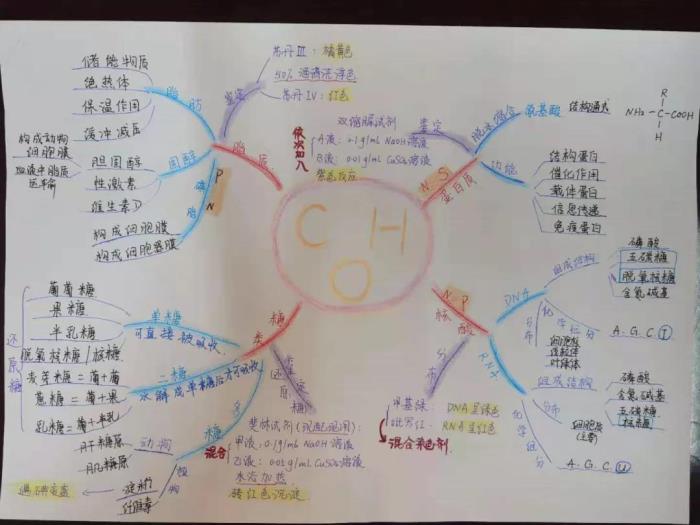 储能物质
绝热体
保温作用
缓冲减压
脂肪
构成动物
细胞膜
血液中脂质
运输
胆固醇
性激素
维生素D
固醇
构成细胞膜
构成细胞器膜
磷脂
P
N
脂质
鉴定
苏丹III：橘黄色
50%酒精洗浮色
苏丹IV：红色
双缩脲试剂
A液：0.1g/ml NaOH溶液
B液：0.01g/ml CuSO4溶液
紫色反应
依次加入
鉴定
脱水缩合
氨基酸
结构通式
R
NH2-C-COOH
H
N S
蛋白质
功能
结构蛋白
催化作用
载体蛋白
信息传递
免疫蛋白
C H
O
N P
核酸
DNA
组成结构
磷酸
五碳糖
脱氧核糖
含氮碱基
化学成分
A.G.C T
分布
细胞核
线粒体
叶绿体
RNA
组成结构
磷酸
含氮碱基
五碳糖
核糖
分布
细胞质
(主要)
化学成分
A.G.C U
分布
甲基绿：DNA呈绿色
吡罗红：RNA呈红色
混合染色剂.
糖类
单糖
可直接被吸收
葡萄糖
果糖
半乳糖
脱氧核糖/核糖
还原糖
二糖
水解成单糖后才可吸收
麦芽糖=葡+葡
蔗糖=葡+果
乳糖=葡+半乳
多糖
动物
肝糖原
肌糖原
植物
淀粉
纤维素
遇碘变蓝
鉴定还原糖
斐林试剂(现配现用)：
甲液：0.1g/ml NaOH溶液
乙液：0.05g/ml CuSO4溶液
混合
水浴加热
砖红色沉淀